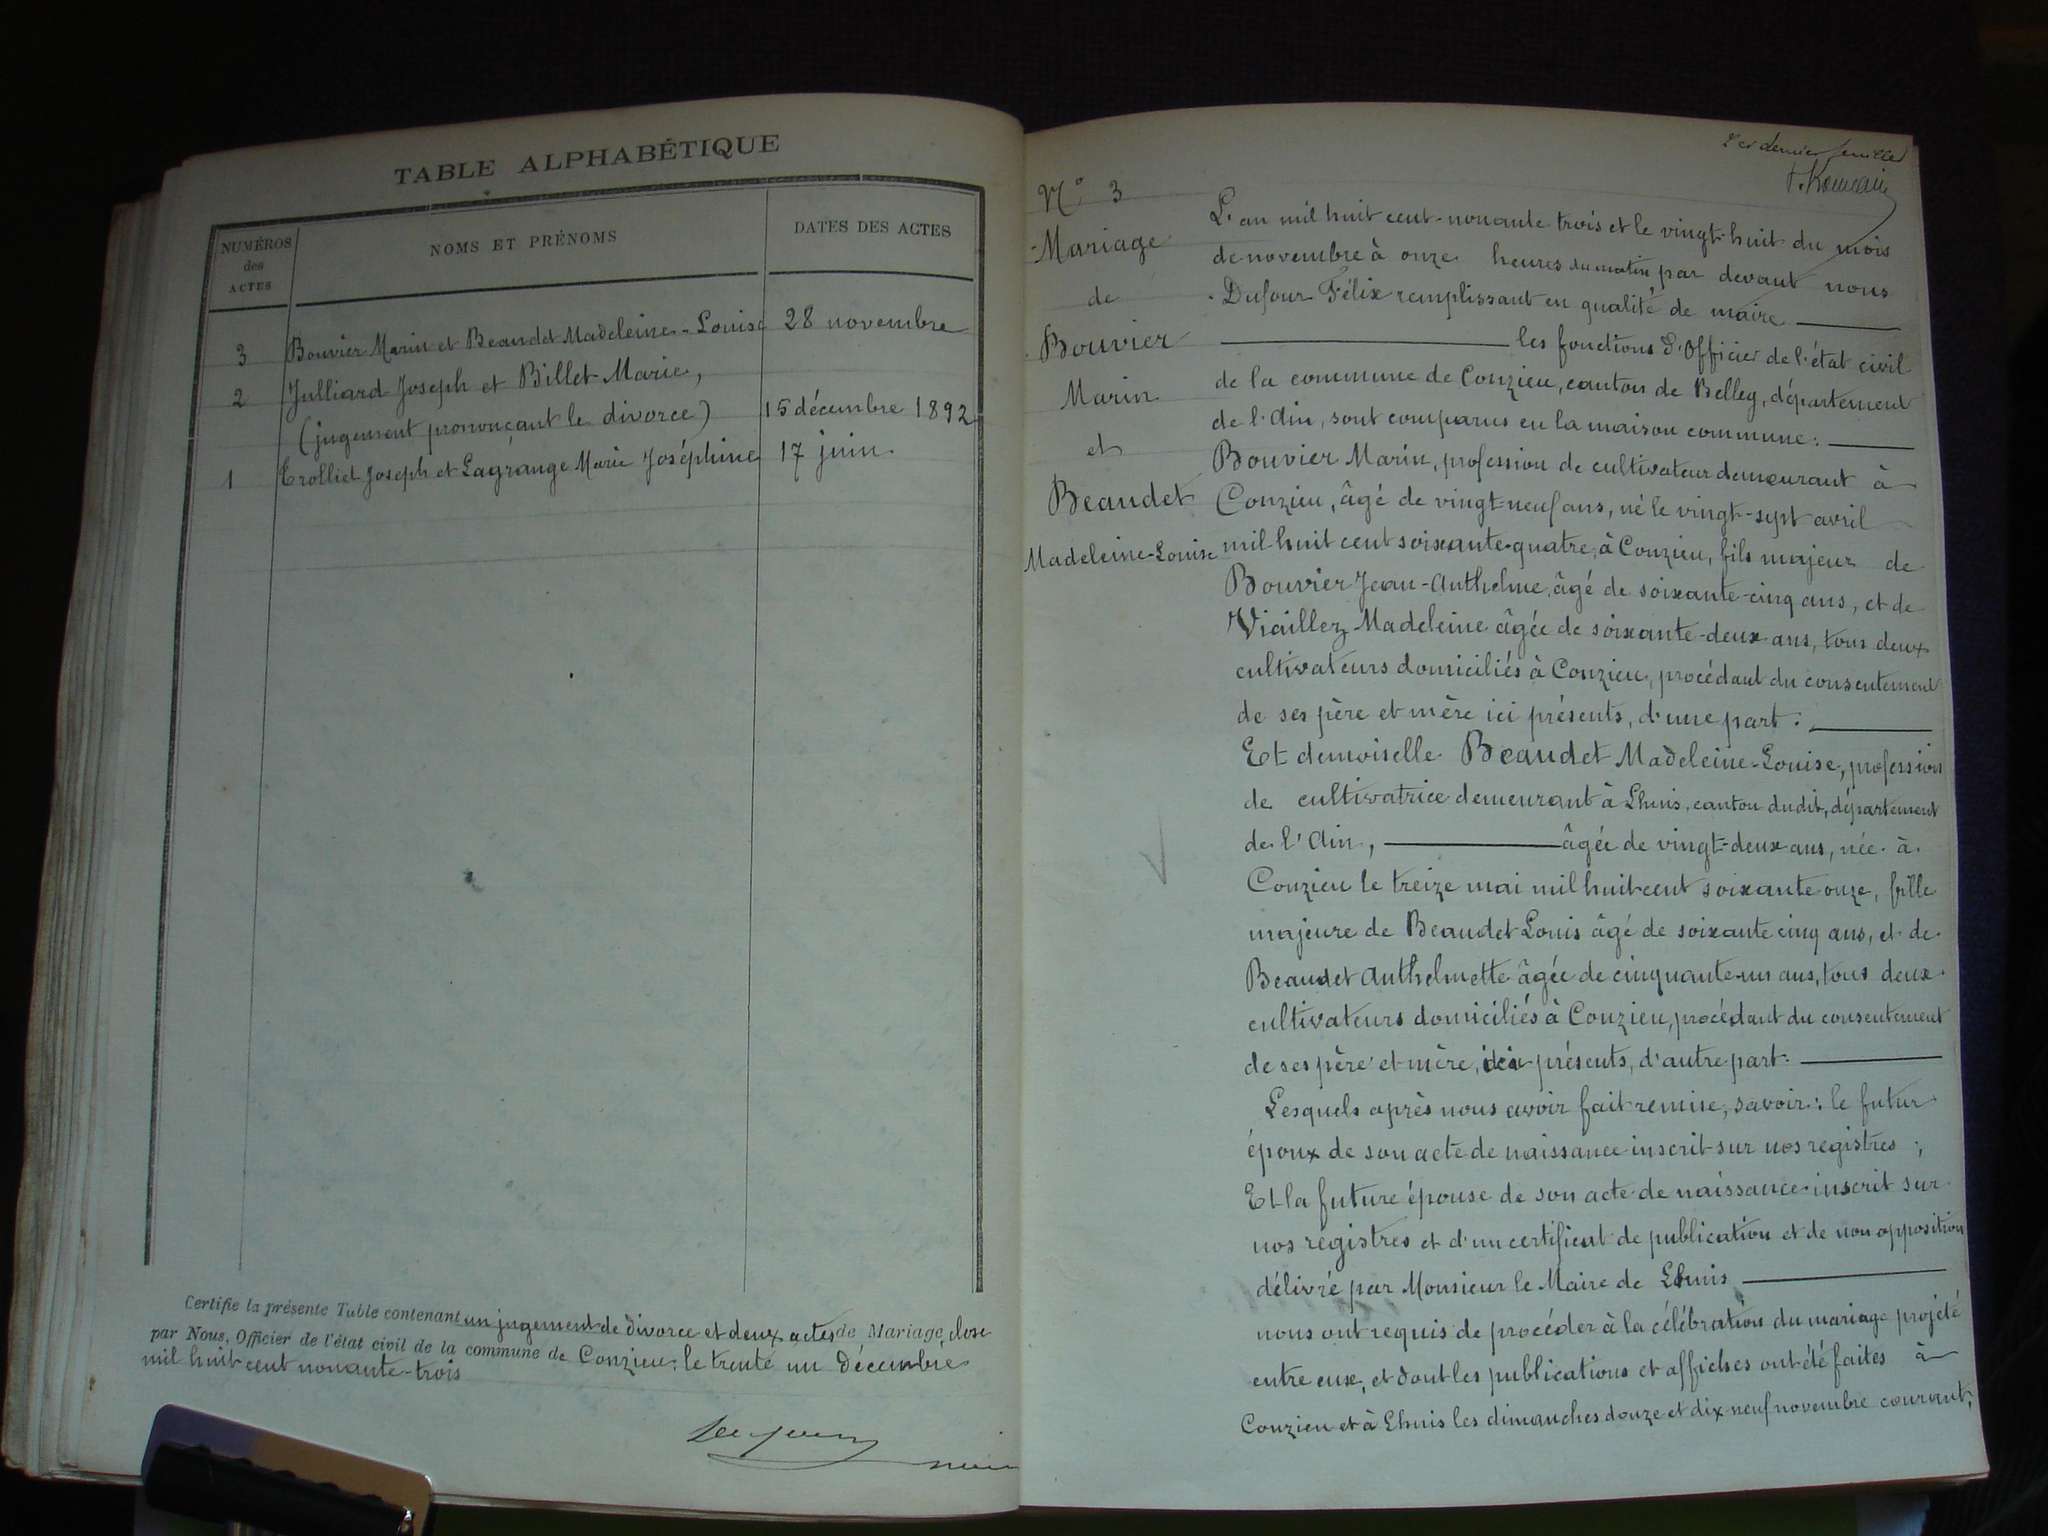 TABLE ALPHABÉTIQUE
NUMÉROS
des
ACTES
NOMS ET PRÉNOMS
DATES DES ACTES
3 Bouvier Marin et Beaudet Madeleine-Louise 28 novembre
2 Julliard Joseph et Billet Marie,
(jugement prononçant le divorce) 15 décembre 1892
1 Trolliet Joseph et Lagrange Marie Joséphine 17 juin.
Certifie la présente Table contenant un jugement de divorce et deux actes de Mariage, close
par Nous, Officier de l'état civil de la commune de Conzieu, le trente un décembre
mil huit cent nonante-trois
2e et dernier feuillet
N° 3
Mariage
de
Bouvier
Marin
et
Beaudet
Madeleine-Louise
L'an mil huit cent nonante trois et le vingt-huit du mois
de novembre à onze heures du matin par devant nous
Dufour Félix remplissant en qualité de maire
les fonctions d'Officier de l'état civil
de la commune de Conzieu, canton de Belley, département
de l'Ain, sont comparus en la maison commune:
Bouvier Marin, profession de cultivateur demeurant à
Conzieu, âgé de vingt-neuf ans, né le vingt-sept avril
mil huit cent soixante-quatre, à Conzieu, fils majeur de
Bouvier Jean-Anthelme, âgé de soixante-cinq ans, et de
Viaillez Madeleine âgée de soixante-deux ans, tous deux
cultivateurs domiciliés à Conzieu, procédant du consentement
de ses père et mère ici présents, d'une part:
Et demoiselle Beaudet Madeleine-Louise, profession
de cultivatrice demeurant à Lhuis, canton dudit, département
de l'Ain, âgée de vingt-deux ans, née à
Conzieu le treize mai mil huit cent soixante onze, fille
majeure de Beaudet Louis âgé de soixante cinq ans, et de
Beaudet Anthelmette âgée de cinquante-un ans, tous deux
cultivateurs domiciliés à Conzieu, procédant du consentement
de ses père et mère, ici présents, d'autre part.
Lesquels après nous avoir fait remise, savoir: le futur
époux de son acte de naissance inscrit sur nos registres;
Et la future épouse de son acte de naissance inscrit sur
nos registres et d'un certificat de publication et de non opposition
délivré par Monsieur le Maire de Lhuis
nous ont requis de procéder à la célébration du mariage projeté
entre eux, et dont les publications et affiches ont été faites à
Conzieu et à Lhuis les dimanches douze et dix-neuf novembre courant,